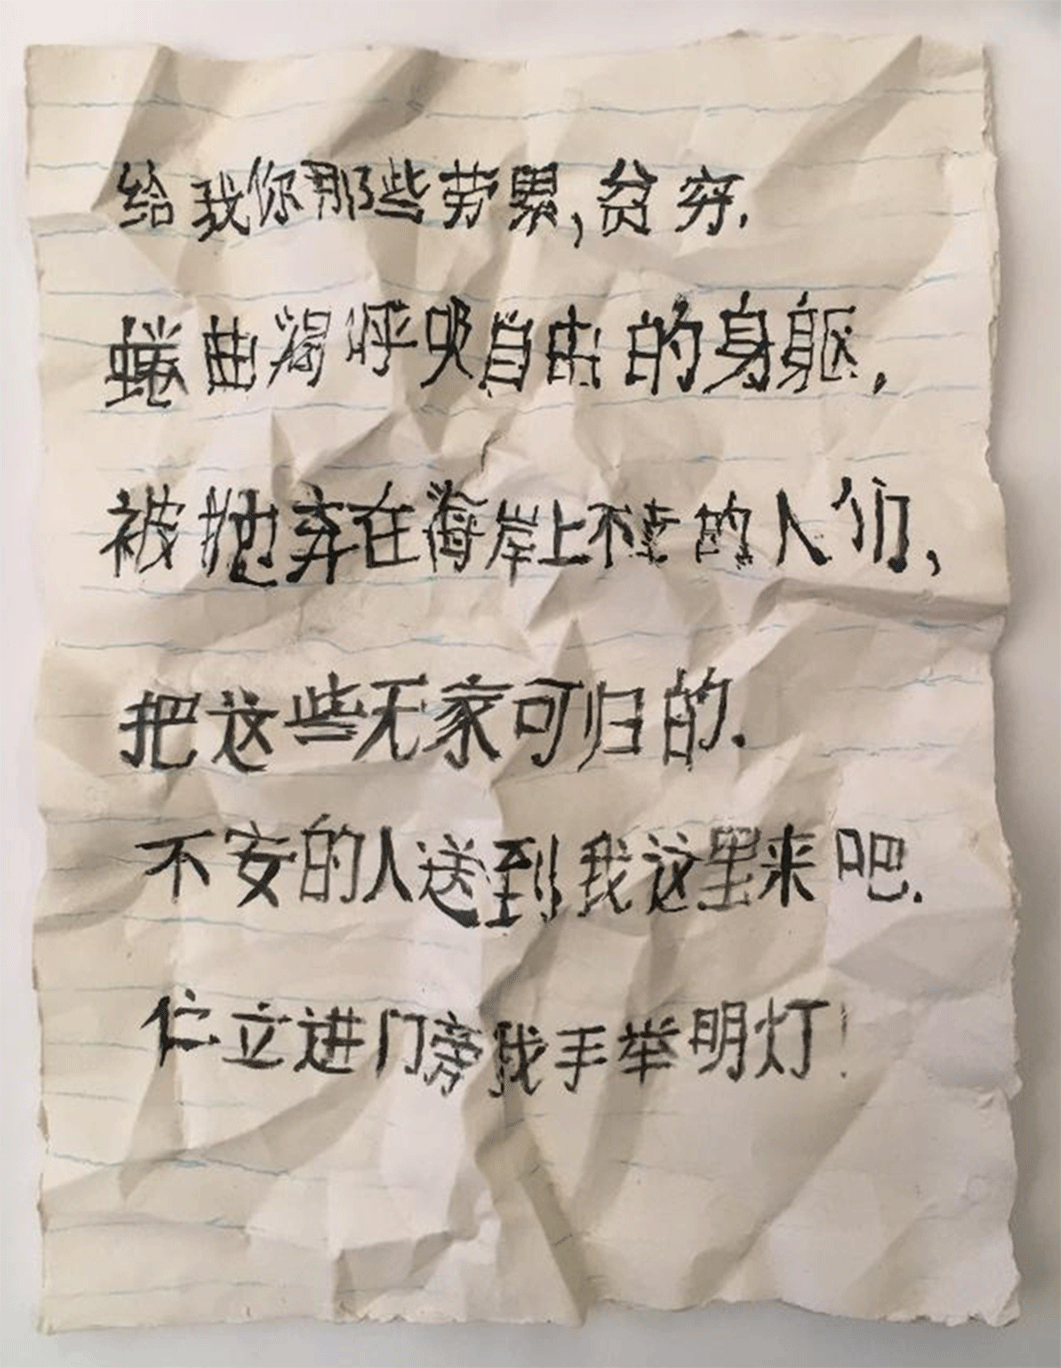 给我你那些劳累,贫穷.
蜷曲渴呼吸自由的身躯,
被抛弃在海岸上不幸的人们,
把这些无家可归的.
不安的人送到我这里来吧.
伫立进门旁我手举明灯!